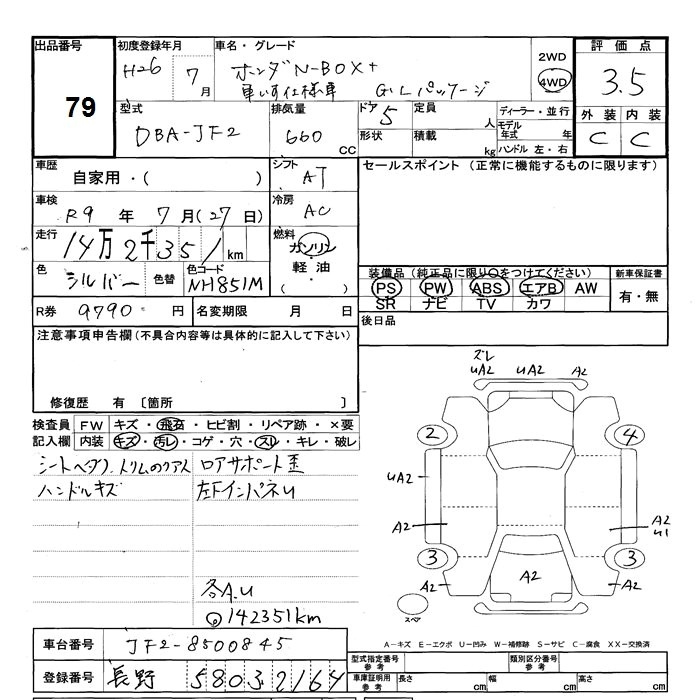 出品番号 初度登録年月 車名・グレード 評価点
79
H26 7月
ホンダ N-BOX+
車いす仕様車 G・Lパッケージ
2WD
4WD
3.5
型式 排気量 ドア 定員 ディーラー・並行 外装 内装
DBA-JF2 660 CC
5 人
モデル年式 年
形状 積載 kg ハンドル 左・右
C C
車歴 シフト セールスポイント (正常に機能するものに限ります)
自家用・( ) AT
車検 冷房
R9年 7月(27日) AC
走行 燃料
14万2千351km ガソリン
軽油
・( )
色 色替 色コード
シルバー NH851M
装備品(純正品に限り○をつけてください) 新車保証書
PS PW ABS エアB AW 有・無
SR ナビ TV カワ
R券 9790円 名変期限 月 日
後日品
注意事項申告欄(不具合内容等は具体的に記入して下さい)
修復歴 有 〔箇所 〕
検査員 FW キズ・飛石・ヒビ割・リペア跡・×要
記入欄 内装 キズ・汚レ・コゲ・穴・スレ・キレ・破レ
シートヘタリ、トリムのクアト ロアサポート歪
ハンドルキズ 左下インパネU
各A.U
142351km
ズレ
UA2 UA2 A2
2 4
UA2
A2 A2
U1
3 3
A2 A2 A2
スペア
A-キズ E-エクボ U-凹み W-補修跡 S-サビ C-腐食 XX-交換済
車台番号 JF2-8500845
型式指定番号 参考 類別区分番号 参考
登録番号 長野 580 す 2164
車庫証明用 参考 長さ cm 幅 cm 高さ cm